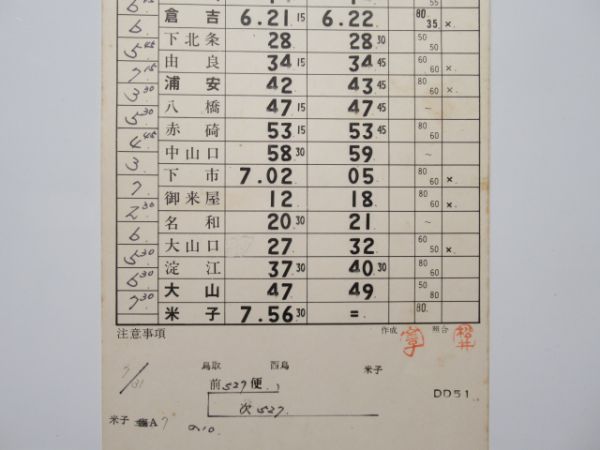 倉吉 6.21 15 6.22 80 35 ×
6 下北条 28 28 30 50 50
5 45 由良 34 15 34 45 80 60 ×
7 15 浦安 42 43 45 80 60 ×
3 30 八橋 47 15 47 45 ~
5 30 赤碕 53 15 53 45 80 60
4 45 中山口 58 30 59 ~
3 下市 7.02 05 80 60 ×
7 御来屋 12 18 80 60 ×
2 30 名和 20 30 21 ~
6 大山口 27 32 60 50 ×
5 30 淀江 37 30 40 30 80 60
6 30 大山 47 49 50 80
7 30 米子 7.56 30 = 80
注意事項 作成 照合 松井
7/31 鳥取 西鳥 米子
前527便
次527.
DD51
米子 A7